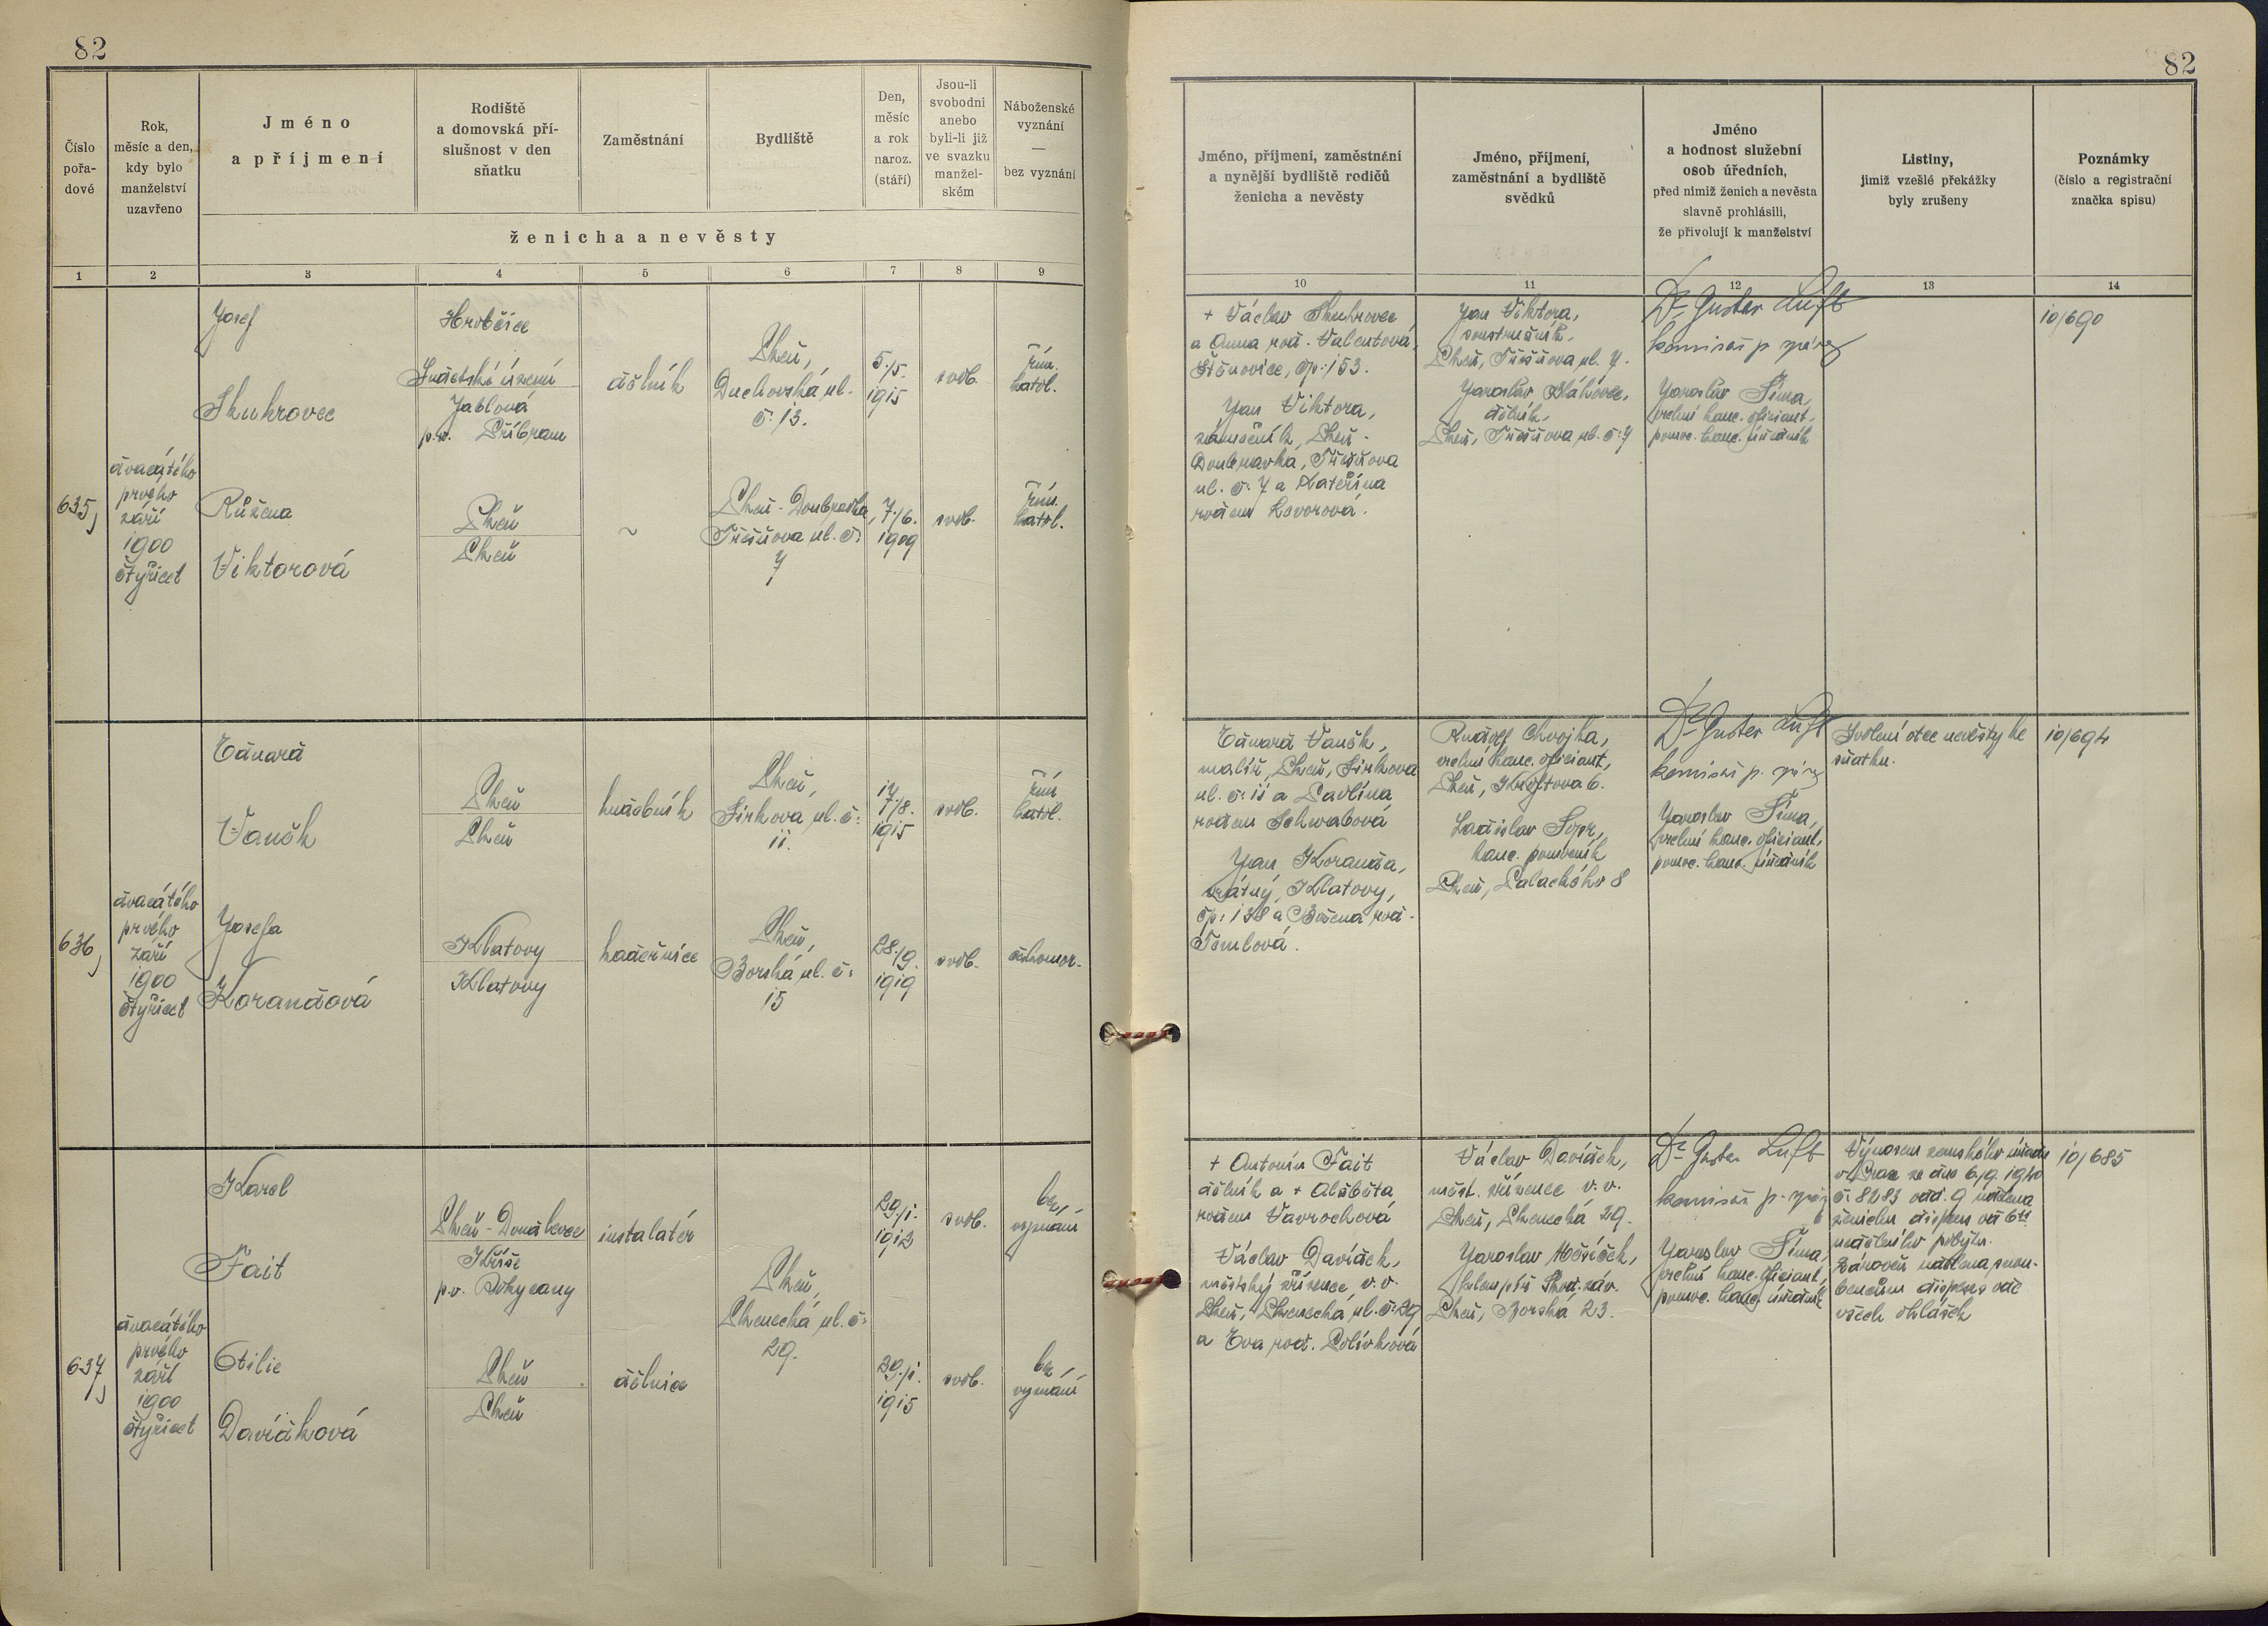 82
82
Číslo
pořa-
dové
Rok,
měsíc a den,
kdy bylo
manželství
uzavřeno
Jméno
a příjmení
Rodiště
a domovská pří-
slušnost v den
sňatku
Zaměstnání
Bydliště
Den,
měsíc
a rok
naroz.
(stáří)
Jsou-li
svobodni
anebo
byli-li již
ve svazku
manžel-
ském
Náboženské
vyznání
—
bez vyznání
ženicha a nevěsty
Jméno, příjmení, zaměstnání
a nynější bydliště rodičů
ženicha a nevěsty
Jméno, příjmení,
zaměstnání a bydliště
svědků
Jméno
a hodnost služební
osob úředních,
před nimiž ženich a nevěsta
slavně prohlásili,
že přivolují k manželství
Listiny,
jimiž vzešlé překážky
byly zrušeny
Poznámky
(číslo a registrační
značka spisu)
1 2 3 4 5 6 7 8 9
10 11 12 13 14
635,
dvacátého
prvého
září
1900
čtyřicet
Josef
Skuhrovec
Hrobčice
Sudetské území
Jablová
p.o. Příbram
dělník
Plzeň,
Duchovská ul.
č. 13.
5./5.
1915
svob.
řím.
katol.
Růžena
Viktorová
Plzeň
Plzeň
~
Plzeň-Doubravka,
ul. č.
7
7./6.
1909
svob.
řím.
katol.
+ Václav Skuhrovec
a Anna rod. Valentová,
Štěnovice, čp. 153.
Jan Viktora,
zámečník, Plzeň-
Doubravka,
ul. č. 7 a Kateřina
rodem Kovorová.
Jan Viktora,
soustružník,
Plzeň, ul. 7.
Jaroslav
dělník,
Plzeň, ul. č. 7
Dr Gustav Luft
komisař p. správy
Jaroslav Šíma,
vrchní kanc. oficiant,
pomoc. kanc. úředník
10/690
636,
dvacátého
prvého
září
1900
čtyřicet
Eduard
Vaněk
Plzeň
Plzeň
hudebník
Plzeň,
Sirkova ul. č.
11.
17./8.
1915
svob.
řím.
katol.
Josefa
Korandová
Klatovy
Klatovy
kadeřnice
Plzeň,
Borská ul. č.
15
28./9.
1919
svob.
českomor.
Eduard Vaněk,
malíř, Plzeň, Sirkova
ul. č. 11 a Pavlína
rodem Schwabová
Jan Koranda,
vrátný, Klatovy,
čp. 138 a Božena rod.
Tomlová.
Rudolf Chvojka,
vrchní kanc. oficiant,
Plzeň, Kroftova 6.
Ladislav
kanc. pomocník
Plzeň, Palackého 8
Dr Gustav Luft
komisař p. správy
Jaroslav Šíma,
vrchní kanc. oficiant,
pomoc. kanc. úředník
Svolení otce nevěsty ke
sňatku.
10/694
637,
dvacátého
prvého
září
1900
čtyřicet
Karel
Fait
Plzeň-Doudlevce
Kříše
p.o. Rokycany
instalatér
29./1.
1912
svob.
bez
vyznání
Otilie
Davídková
Plzeň
Plzeň
dělnice
Plzeň,
Plzenecká ul. č.
29.
29./1.
1915
svob.
bez
vyznání
+ Antonín Fait
dělník a + Alžběta
rodem Vavrochová
Václav Davídek,
městský zřízenec v. v.
Plzeň, Plzenecká ul. č. 29
a Eva rod. Polívková
Václav Davídek,
měst. zřízenec v. v.
Plzeň, Plzenecká 29.
Jaroslav Měsíček,
Škod. záv.
Plzeň, Borská 23.
Dr Gustav Luft
komisař p. správy
Jaroslav Šíma,
vrchní kanc. oficiant,
pomoc. kanc. úředník
Výnosem zemského úřadu
v Praze ze dne 6./9. 1940
č. 8283 odd. 9 udělena
ženichu dispens od 6ti
nedělního pobytu.
Zároveň udělena snou-
bencům dispens od
všech ohlášek
10/685